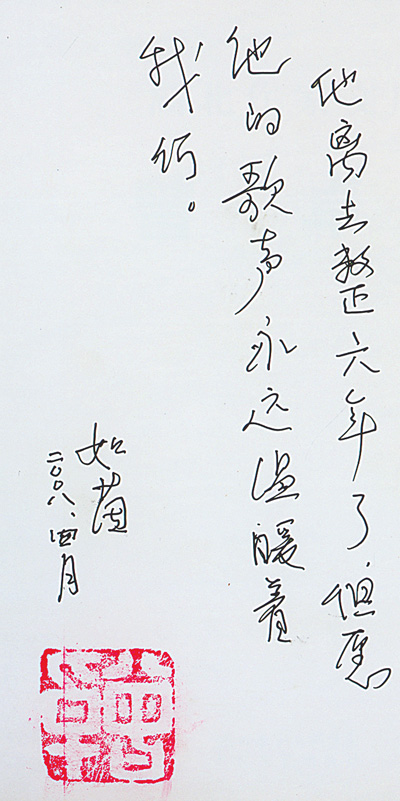 他离去整六年了，但愿
他的歌声永远温暖着
我们。
如
二〇〇八、四月